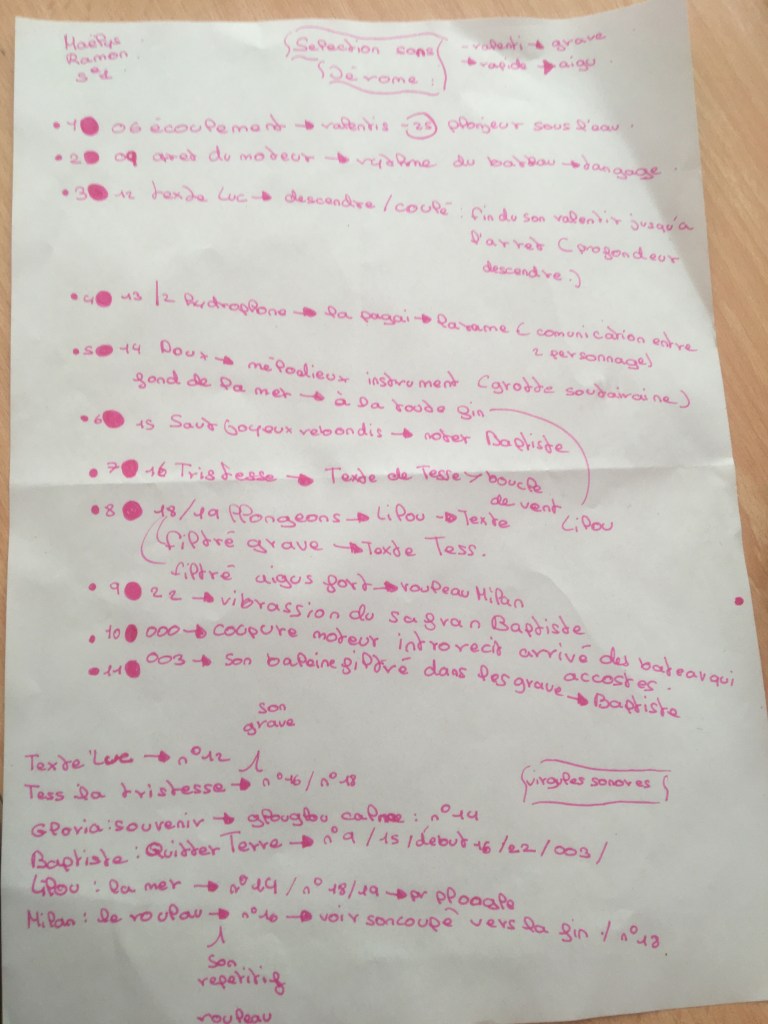 Maëlys
Ramon
5e1
Selection sons
Jérome :
- ralenti → grave
→ rapide → aigu
• 1 06 écoulement → ralentis - 25 plonjeur sous l'eau.
• 2 09 aret du moteur → rytdme du bateau → tangage.
• 3 12 texte Luc → descendre / coupé : fin du son ralentir jusqu'a
l'arret (profondeur
descendre.)
• 4 13 / 2 hydrophone → la pagai → la rame (comunication entre
2 personnage)
• 5 14 Doux → mélodieux instrument (grotte soutairaine)
fond de la mer → à la toute fin
• 6 15 Saut Goyeux rebondis → noter Baptiste
• 7 16 Tristesse → Texte de Tesse > boucle
de vent
Lilou
• 8 18/19 Plongeons → Lilou → Texte
filtré grave → Texte Tess.
filtré aigus fort → rouleau Milan
• 9 22 → vibrassion du safran Baptiste
• 10 000 → coupure moteur intro recit arrivé des bateau qui
accostes.
• 11 003 → son baleine filtré dans les grave → Baptiste
Son
grave
Texte Luc → n°12
Tess la tristesse → n°16 / n°18
virgules sonores
Gloria : souvenir → glouglou calme : n°14
Baptiste : Quitter Terre → n°9 / 15 / début 16 / 22 / 003 /
Lilou : la mer → n°14 / n°18/19 → pr
Milan : le roulau → n°10 → voir son coupé vers la fin / n°18.
Son
repetitif
rouleau